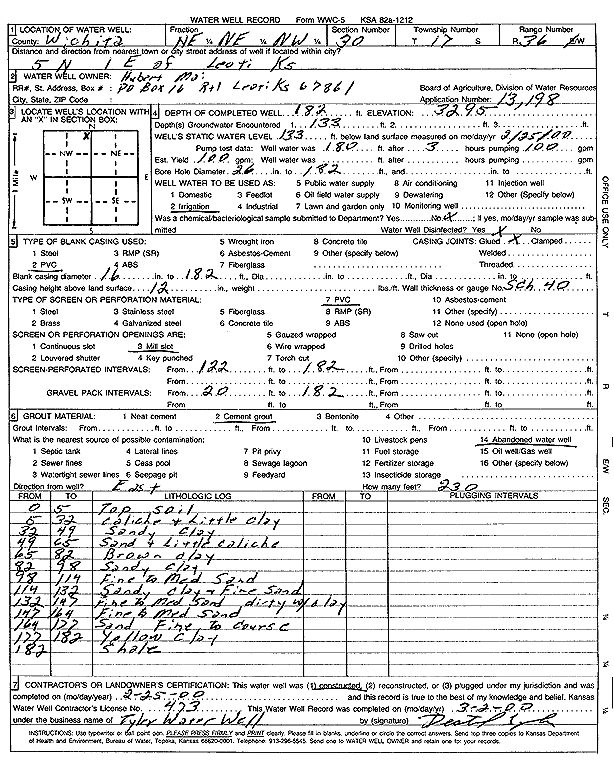 WATER WELL RECORD Form WWC-5 KSA 82a-1212
1 LOCATION OF WATER WELL: Fraction Section Number Township Number Range Number
County: Wichita NE ¼ NE ¼ NW ¼ 30 T 17 S R 36 E/W
Distance and direction from nearest town or city street address of well if located within city?
5 N 1 E of Leoti Ks
2 WATER WELL OWNER: Hubert
RR#, St. Address, Box #: PO Box 16 Rt1 Leoti Ks 67861 Board of Agriculture, Division of Water Resources
City, State, ZIP Code Application Number: 13,198
3 LOCATE WELL'S LOCATION WITH AN "X" IN SECTION BOX:
N
X
NW NE
W E
SW SE
S
1 Mile
4 DEPTH OF COMPLETED WELL 182 ft. ELEVATION: 3295
Depth(s) Groundwater Encountered 1. 133 ft. 2. ft. 3. ft.
WELL'S STATIC WATER LEVEL 133 ft. below land surface measured on mo/day/yr 2/25/00
Pump test data: Well water was 180 ft. after 3 hours pumping 100 gpm
Est. Yield 100 gpm: Well water was ft. after hours pumping gpm
Bore Hole Diameter 26 in. to 182 ft., and in. to ft.
WELL WATER TO BE USED AS: 5 Public water supply 8 Air conditioning 11 Injection well
1 Domestic 3 Feedlot 6 Oil field water supply 9 Dewatering 12 Other (Specify below)
2 Irrigation 4 Industrial 7 Lawn and garden only 10 Monitoring well
Was a chemical/bacteriological sample submitted to Department? Yes No X ; If yes, mo/day/yr sample was sub-
mitted Water Well Disinfected? Yes X No
5 TYPE OF BLANK CASING USED: 5 Wrought iron 8 Concrete tile CASING JOINTS: Glued X Clamped
1 Steel 3 RMP (SR) 6 Asbestos-Cement 9 Other (specify below) Welded
2 PVC 4 ABS 7 Fiberglass Threaded
Blank casing diameter 16 in. to 182 ft., Dia in. to ft., Dia in. to ft.
Casing height above land surface 12 in., weight lbs./ft. Wall thickness or gauge No. SCh. 40
TYPE OF SCREEN OR PERFORATION MATERIAL: 7 PVC 10 Asbestos-cement
1 Steel 3 Stainless steel 5 Fiberglass 8 RMP (SR) 11 Other (specify)
2 Brass 4 Galvanized steel 6 Concrete tile 9 ABS 12 None used (open hole)
SCREEN OR PERFORATION OPENINGS ARE: 5 Gauzed wrapped 8 Saw cut 11 None (open hole)
1 Continuous slot 3 Mill slot 6 Wire wrapped 9 Drilled holes
2 Louvered shutter 4 Key punched 7 Torch cut 10 Other (specify)
SCREEN-PERFORATED INTERVALS: From 122 ft. to 182 ft., From ft. to ft.
From ft. to ft., From ft. to ft.
GRAVEL PACK INTERVALS: From 20 ft. to 182 ft., From ft. to ft.
From ft. to ft., From ft. to ft.
6 GROUT MATERIAL: 1 Neat cement 2 Cement grout 3 Bentonite 4 Other
Grout Intervals: From ft. to ft., From ft. to ft., From ft. to ft.
What is the nearest source of possible contamination: 10 Livestock pens 14 Abandoned water well
1 Septic tank 4 Lateral lines 7 Pit privy 11 Fuel storage 15 Oil well/Gas well
2 Sewer lines 5 Cess pool 8 Sewage lagoon 12 Fertilizer storage 16 Other (specify below)
3 Watertight sewer lines 6 Seepage pit 9 Feedyard 13 Insecticide storage
Direction from well? East How many feet? 230
FROM TO LITHOLOGIC LOG FROM TO PLUGGING INTERVALS
0 5 Top Soil
5 32 Caliche + Little Clay
32 49 Sandy Clay
49 65 Sand + Little Caliche
65 82 Brown Clay
82 98 Sandy Clay
98 114 Fine to Med Sand
114 132 Sandy Clay + Fine Sand
132 147 Fine to Med Sand dirty w/clay
147 164 Fine to Med Sand
164 177 Sand Fine to Course
177 182 Yellow Clay
182 Shale
7 CONTRACTOR'S OR LANDOWNER'S CERTIFICATION: This water well was (1) constructed, (2) reconstructed, or (3) plugged under my jurisdiction and was
completed on (mo/day/year) 2-25-00 and this record is true to the best of my knowledge and belief. Kansas
Water Well Contractor's License No. 473 This Water Well Record was completed on (mo/day/yr) 3-2-00
under the business name of Tyler Water Well by (signature)
INSTRUCTIONS: Use typewriter or ball point pen. PLEASE PRESS FIRMLY and PRINT clearly. Please fill in blanks, underline or circle the correct answers. Send top three copies to Kansas Department
of Health and Environment, Bureau of Water, Topeka, Kansas 66620-0001. Telephone: 913-296-5545. Send one to WATER WELL OWNER and retain one for your records.
OFFICE USE ONLY
T
R
E/W
SEC.
¼
¼
¼